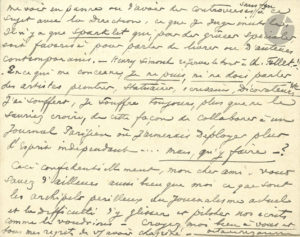 me voir en pannes ou d'avoir des controverses à ce
sujet avec les directions, ce que je
Il n'y a que qui, par des grâces spéciales
sont favorisés, pour parler de livres ou d'auteurs
contemporains. Henry Simond
En ce qui me concerne, je ne puis, ni ne dois parler
des artistes peintres, statuaires, écrivains, Décorateurs
J'ai souffert, je souffre toujours, plus que ne le
sauriez croire, de cette façon de collaborer à un
Journal Parisien où j'aimerais déployer plus
l'esprit indépendant... mais, qu'y faire - ?
Ceci confidentiellement, mon cher ami. Vous
savez d'ailleurs aussi bien que moi ce que sont
les archipels périlleux du Journalisme actuel
et la difficulté d'y glisser et piloter nos écrits
comme on voudrait. Croyez, mon bien à vous et à
tous mes regrets de n'avoir